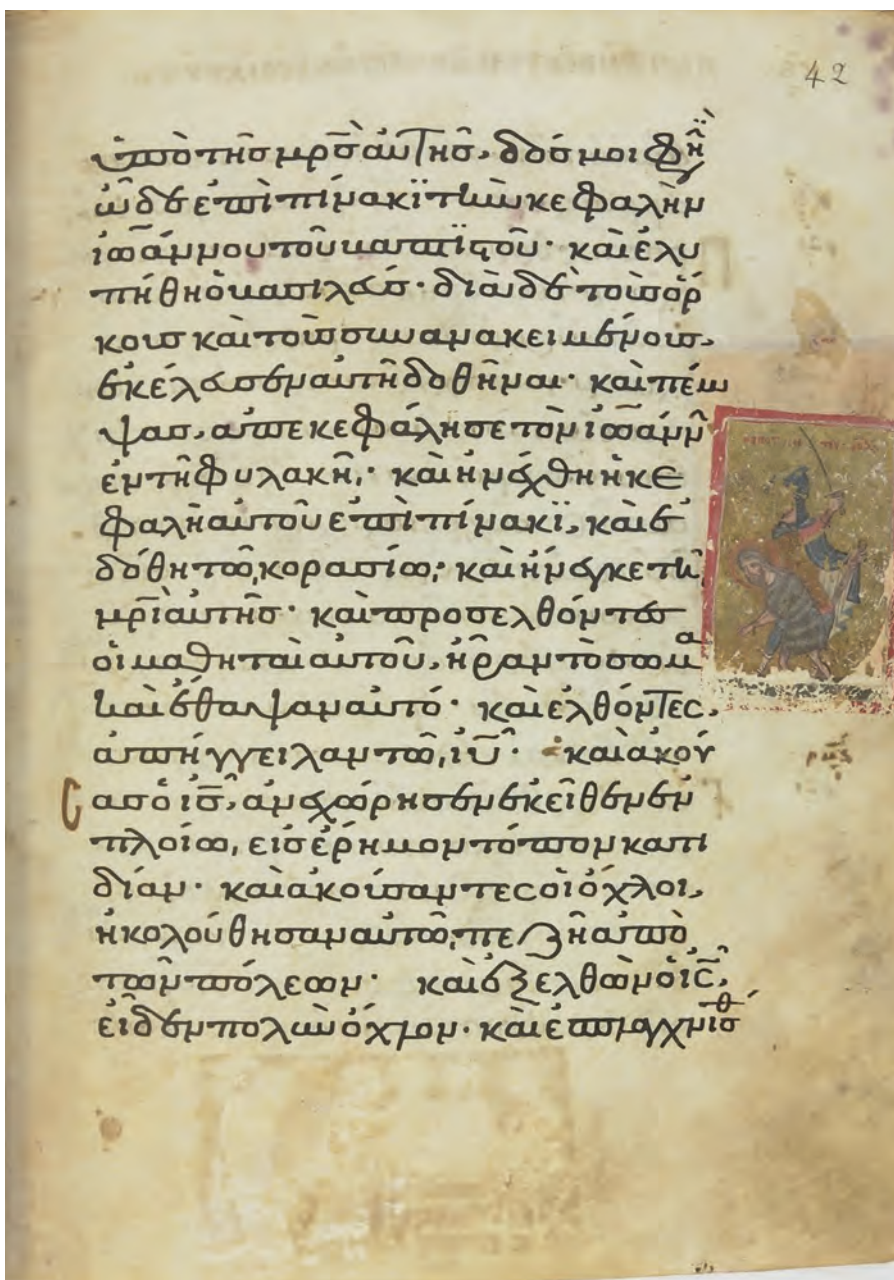 42
ὑπὸ τῆς μρ̅ς αὐτῆς, δός μοι φη
ὧδε ἐπὶ πίνακϊ τὴν κεφαλὴν
ἰωάννου τοῦ βαπτϊστοῦ· καὶ ἐλυ
πήθη ὁ βασιλεύς· διὰ δὲ τοὺς ὅρ
κους καὶ τοὺς συνανακειμένους,
ἐκέλευσεν αὐτῆ δοθῆναι· καὶ πέμ
ψας, ἀπεκεφάλησε τὸν ἰωάνν
ἐν τῆ φυλακῆ· καὶ ἠνέχθη ἡ κε
φαλὴ αὐτοῦ ἐπὶ πίνακϊ, καὶ ἐ
δόθη τῶ κορασίω· καὶ ἤνεγκε τῆ
μρ̅ὶ αὐτῆς· καὶ προσελθόντες
οἱ μαθηταὶ αὐτοῦ, ἦραν τὸ σῶμα
καὶ ἔθαψαν αὐτό· καὶ ἐλθόντες,
ἀπήγγειλαν τῶ ἰυ̅· καὶ ἀκού
σας ὁ ἰς̅, ἀνεχώρησεν ἐκεῖθεν ἐν
πλοίω, εἰς ἔρημον τόπον κατι
δίαν· καὶ ἀκούσαντες οἱ ὄχλοι,
ἠκολούθησαν αὐτῶ πεζῆ ἀπὸ
τῶν πόλεων· καὶ ἐξελθὼν ὁ ἰς̅,
εἶδεν πολὺν ὄχλον· καὶ ἐσπλαγχνίσθ